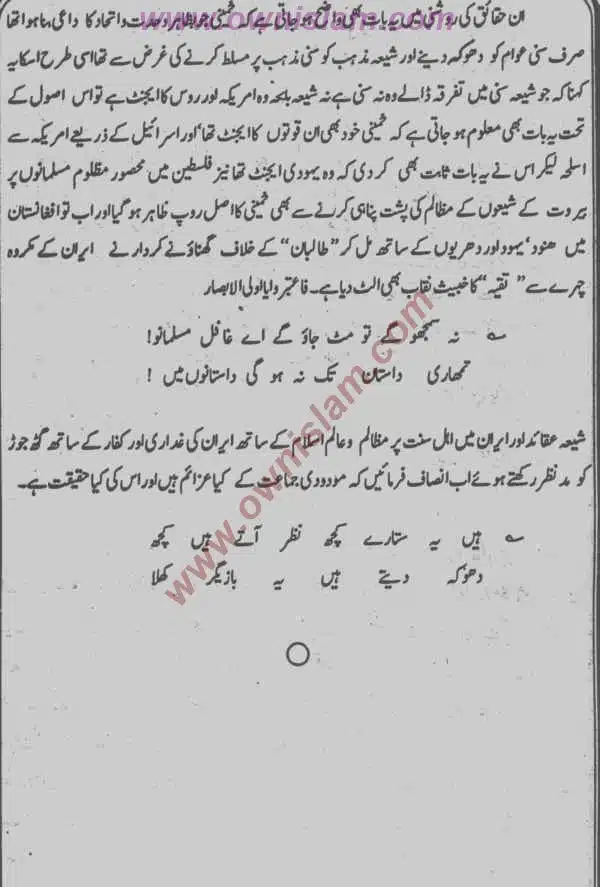 www.ownislam.com
ان حقائق کی روشنی میں یہ بات بھی واضح ہو جاتی ہے کہ خمینی جو بظاہر وحدت و اتحاد کا داعی بنا ہوا تھا
صرف سنی عوام کو دھوکہ دینے اور شیعہ مذہب کو سنی مذہب پر مسلط کرنے کی غرض سے تھا اسی طرح اسکا یہ
کہنا کہ جو شیعہ سنی میں تفرقہ ڈالے وہ نہ سنی ہے نہ شیعہ بلکہ وہ امریکہ اور روس کا ایجنٹ ہے تو اس اصول کے
تحت یہ بات بھی معلوم ہو جاتی ہے کہ خمینی خود بھی ان قوتوں کا ایجنٹ تھا‘ اور اسرائیل کے ذریعے امریکہ سے
اسلحہ لیکر اس نے یہ بات ثابت بھی کر دی کہ وہ یہودی ایجنٹ تھا نیز فلسطین میں محصور مظلوم مسلمانوں پر
بیروت کے شیعوں کے مظالم کی پشت پناہی کرنے سے بھی خمینی کا اصل روپ ظاہر ہو گیا اور اب تو افغانستان
میں ھنود‘ یہود اور دھریوں کے ساتھ مل کر ”طالبان“ کے خلاف گھناؤنے کردار نے ایران کے مکروہ
چہرے سے ”تقیہ“ کا خبیث نقاب بھی الٹ دیا ہے۔ فاعتبروا یا اولی الابصار
نہ سمجھو گے تو مٹ جاؤ گے اے غافل مسلمانو!
تمھاری داستان تک نہ ہو گی داستانوں میں !
شیعہ عقائد اور ایران میں اہل سنت پر مظالم و عالم اسلام کے ساتھ ایران کی غداری اور کفار کے ساتھ گٹھ جوڑ
کو مد نظر رکھتے ہوئے اب انصاف فرمائیں کہ مودودی جماعت کے کیا عزائم ہیں اور اس کی کیا حقیقت ہے۔
ہیں یہ ستارے کچھ نظر آتے ہیں کچھ
دھوکہ دیتے ہیں یہ بازیگر کھلا
www.ownislam.com